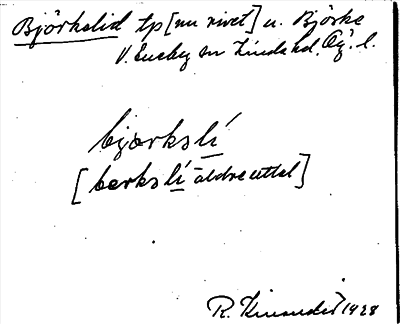 Björkelid tp [nu rivet] u. Björke
V. Eneby sn Kinda hd. Ög. l.
bjærkslí
[bærkslí äldre uttal]
R. 1928